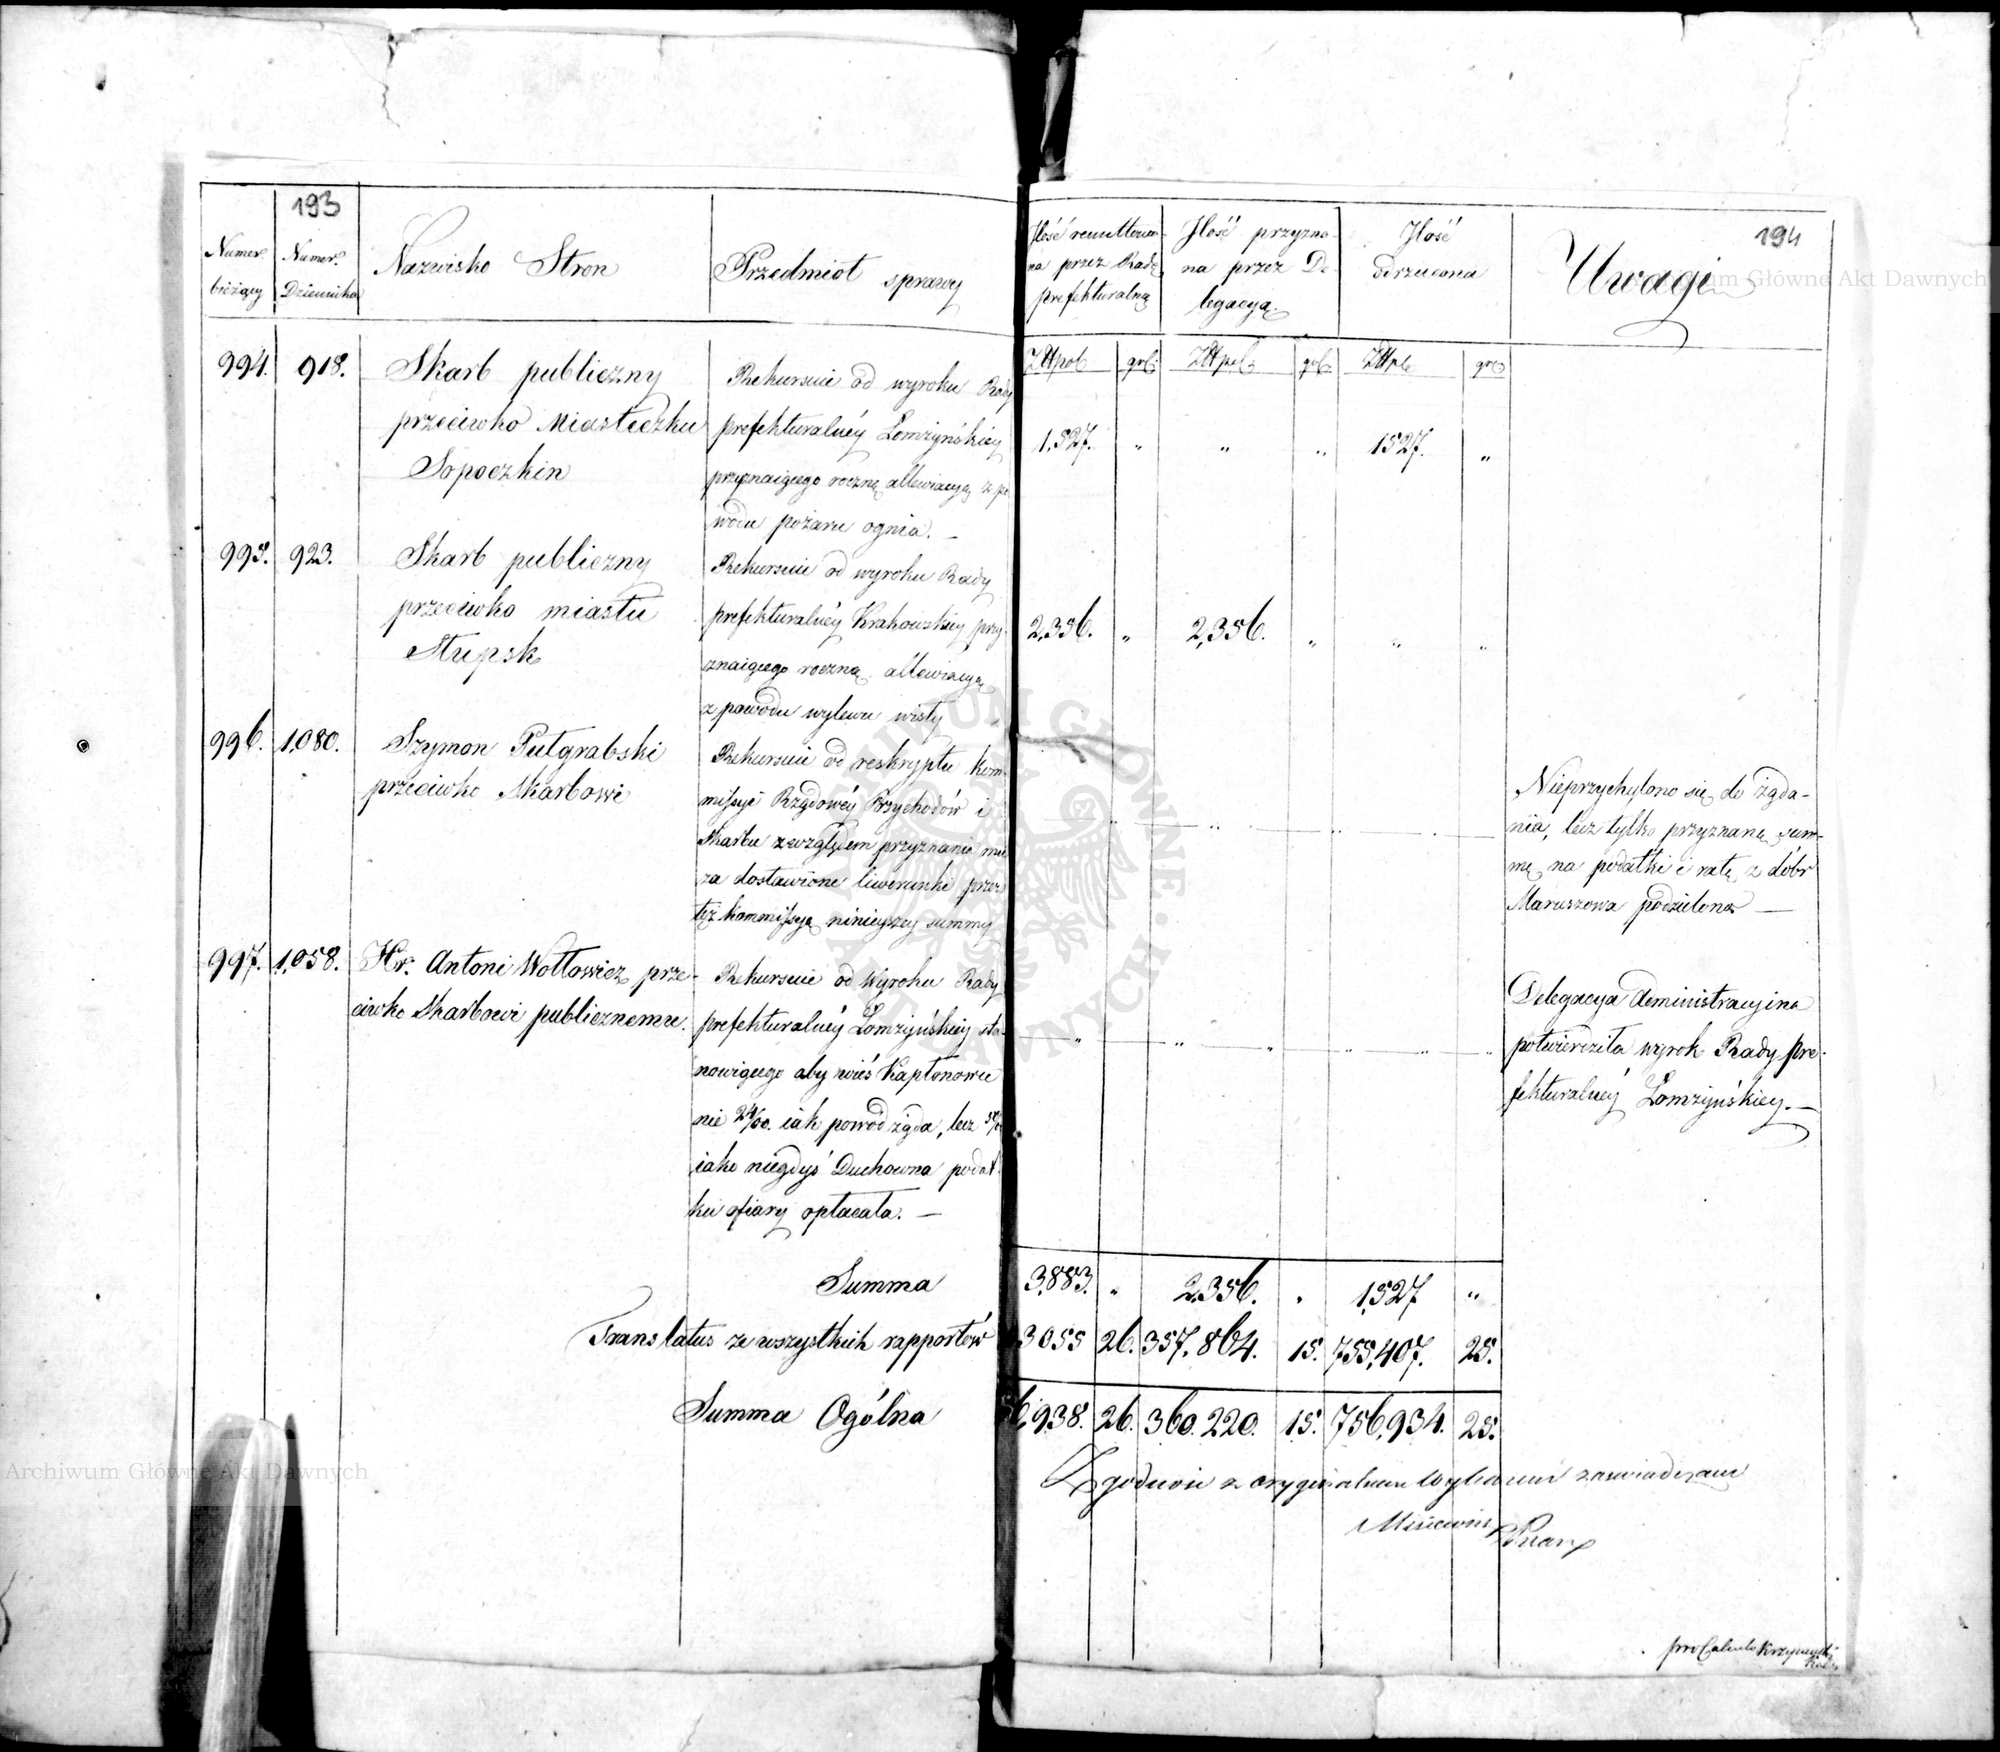 193
Numer bieżący
Numer Dziennika
Nazwisko Stron
Przedmiot sprawy
Ilość przyzna-
na przez De-
legacyą.
Ilość
odrzucona
Uwagi
194
na przez Radę
prefekturalną
Złłpol gr. Złłpol gr. Złłpol gr.
994. 918.
Skarb publiczny
przeciwko Miasteczku
Sopoczkin
Rekursuie od wyroku Rady
prefekturalnéy Łomzyńskiéy
przyznaiącego roczną allewiacyą z po
wodu pożaru ognia. —
1,527. " " " 1527. "
995. 923.
Skarb publiczny
przeciwko miastu
Słupsk
Rekursuie od wyroku Rady
prefekturalnéy Krakowskiey przy-
znaiącego roczną allewiacyą
z powodu wylewu wisły
2,356. " 2,356. " " "
996. 1,080.
Szymon Putgrabski
przeciwko Skarbowi
Rekursuie od reskryptu Kom-
missyi Rządowéy Przychodów i
Skarbu względem przyznanie mu
za dostawione liwerunki przez
tęż Kommissyą ninieyszey summy
Nieprzychylono się do żąda-
nia, lecz tylko przyznaną sum-
mę na podatki i ratę z dóbr
Maruszowa podzielono —
997. 1,058.
Hr. Antoni Wołłowicz prze-
ciwko Skarbowi publicznemu.
Rekursuie od Wyroku Rady
prefekturalnéy Łomzyńskiey sta-
nowiącego aby wieś Kapłonowce
nie 24/00. iak powód żąda, lecz
iako niegdyś Duchowna podat
ku ofiary opłacała. —
Delegacya Administracyina
potwierdziła wyrok Rady pre-
fekturalnéy Łomzyńskiey. —
Summa 3,883. " 2,356. " 1,527 "
Translatus ze wszystkich rapportów 3055 26. 357,864. 15. 755,407. 25.
Summa Ogólna 6,938. 26. 360.220. 15. 756,934. 25.
Zgodność z oryginałem zaświadczam
pro Calculo
Archiwum Główne Akt Dawnych
Archiwum Główne Akt Dawnych
ARCHIWUM GŁÓWNE AKT DAWNYCH